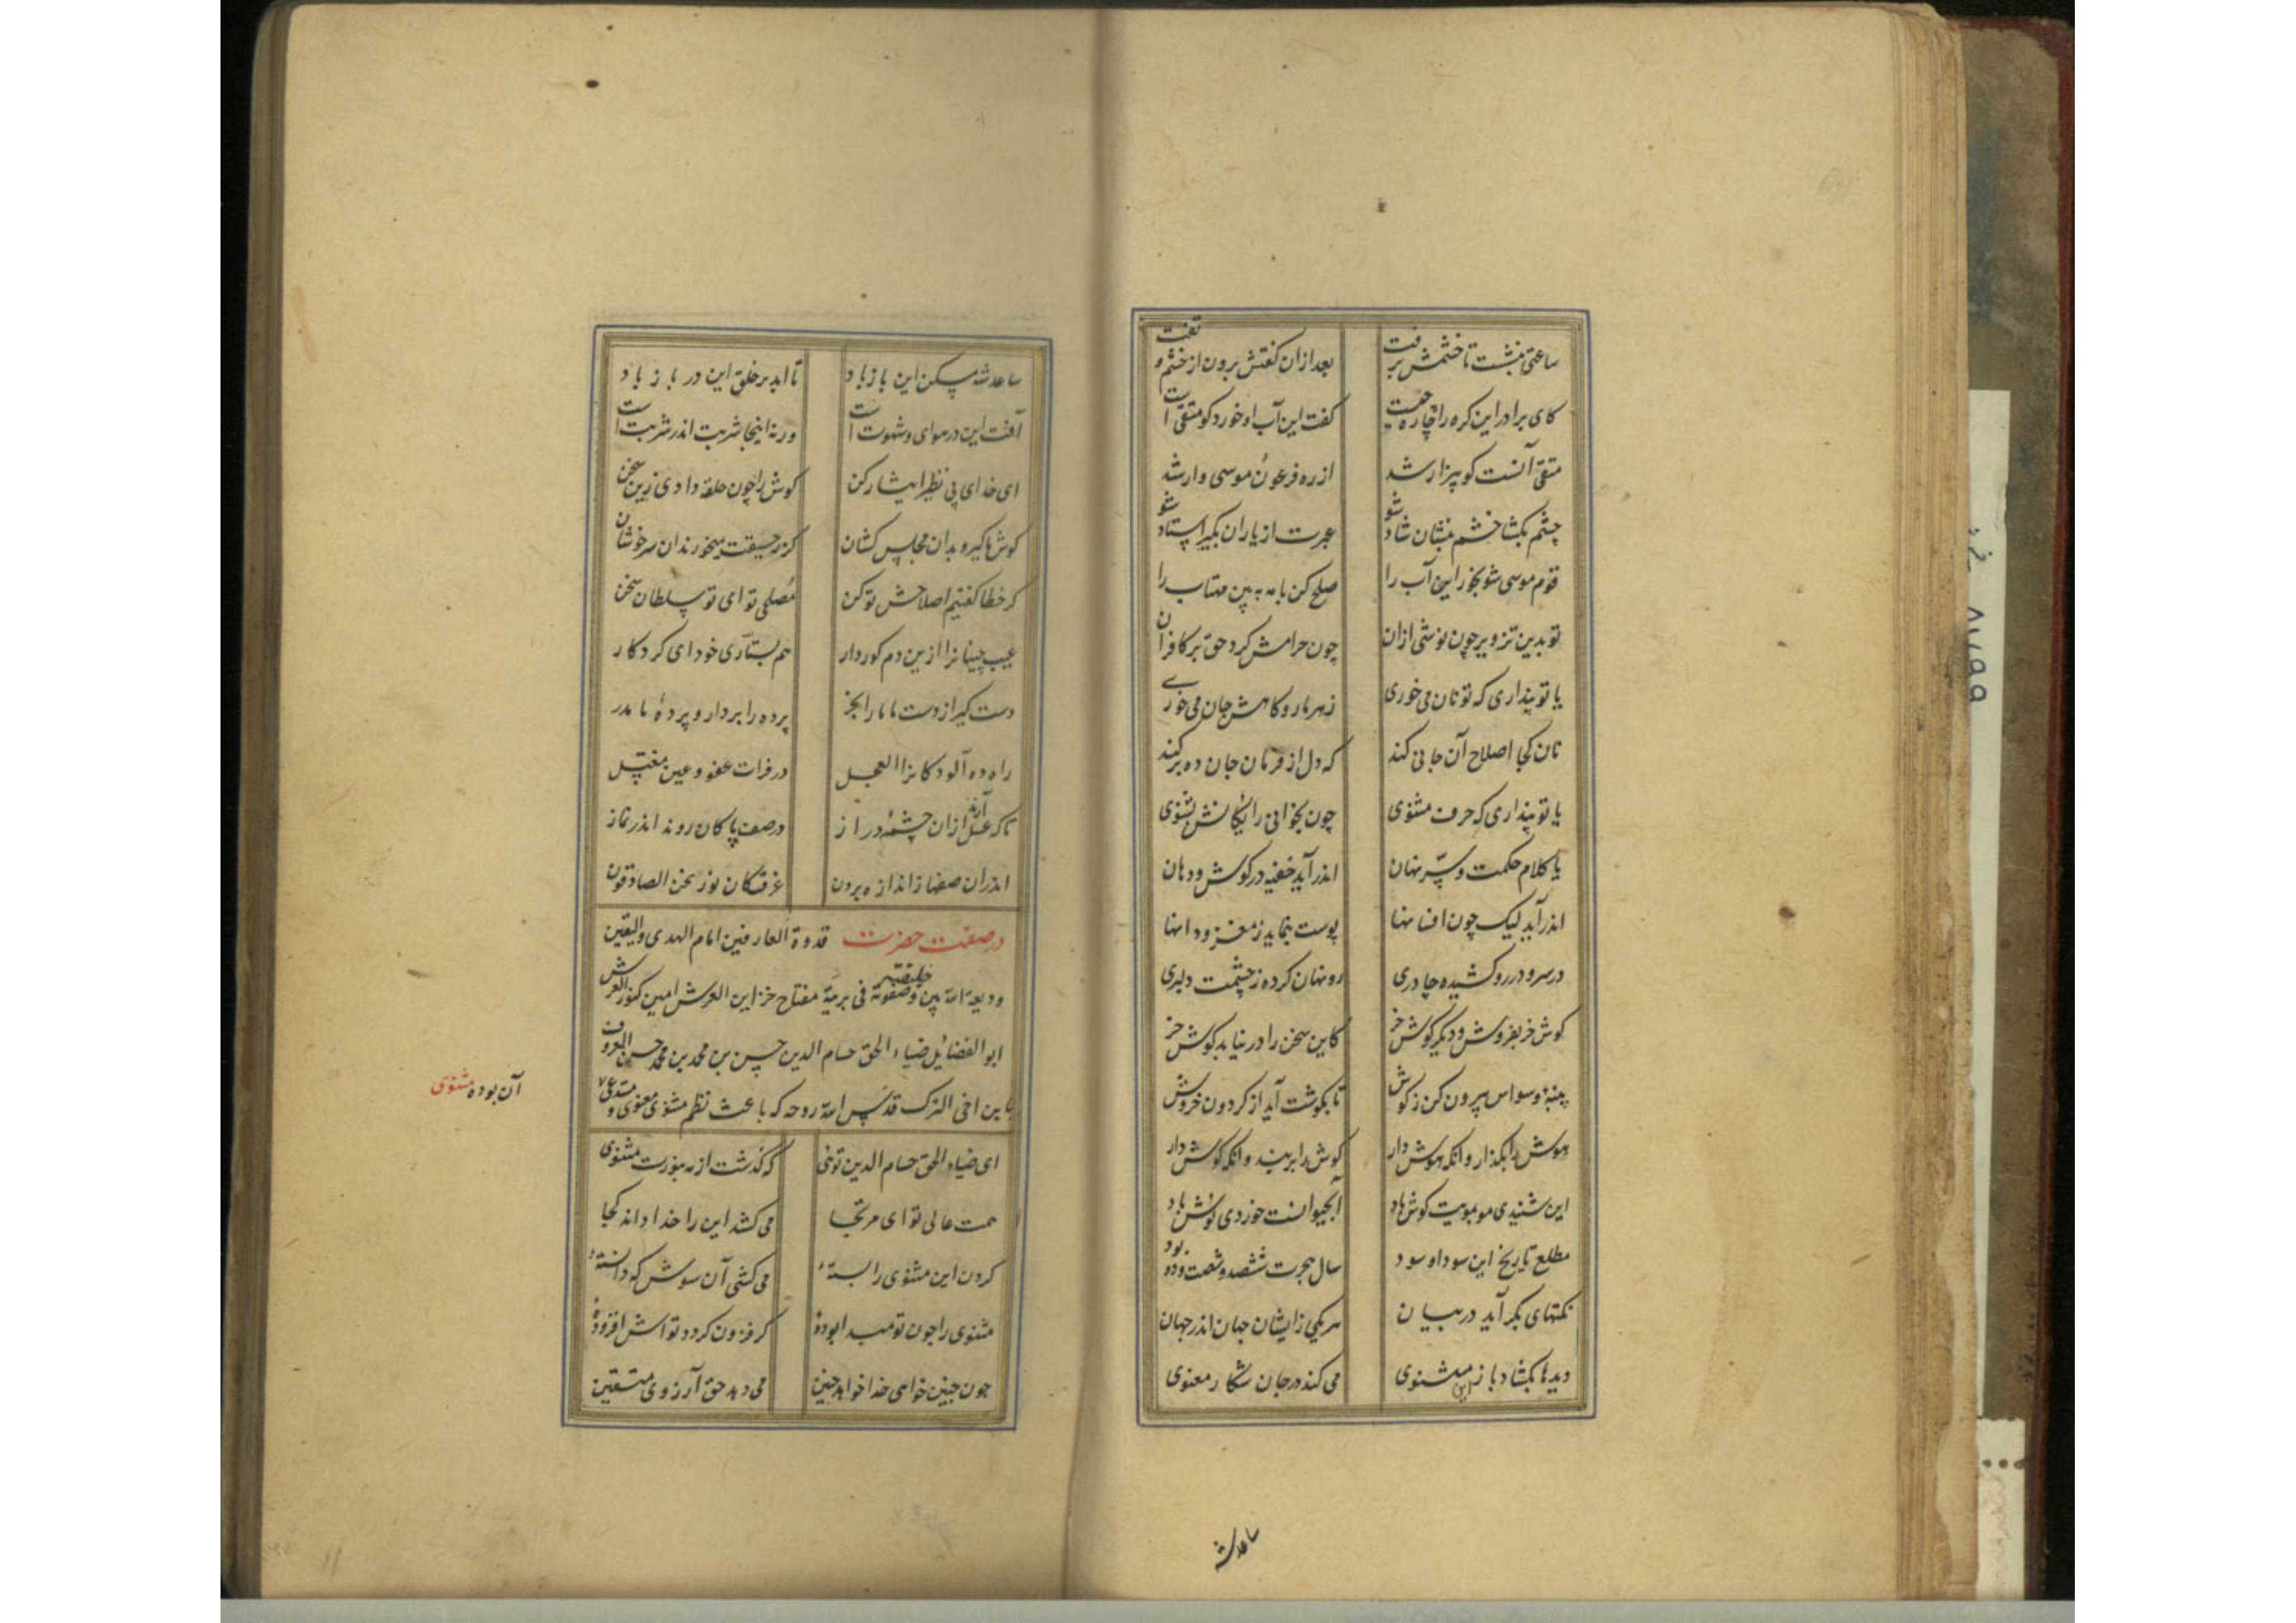 ساعتی بنشست تا خشمش برفت بعد ازان گفتش برون از خشم و تفت
کای برادر این گره را چاره چیست گفت این آب او خورد کو متقی است
متقی آنست کو بیزار شد از ره فرعون و موسی وار شد
قوم موسی شو بخور این آب را صلح کن با مه ببین مهتاب را
چشم بگشا خشم بنشان شاد شو عبرت از یاران بگیر استاد شو
تو بدین تزویر چون نوشی ازان چون حرامش کرد حق بر کافران
یا تو پنداری که تو نان می خوری زهر مار و کاهش جان می خوری
نان کجا اصلاح آن جانی کند که دل از فرمان جان ده برکند
یا تو پنداری که حرف مثنوی چون بخوانی رایگانش بشنوی
یا کلام حکمت و سر نهان اندر آید خفیه در گوش و دهان
اندر آید لیک چون افسانها پوست بنماید ز مغز و دانها
در سر و در رو کشیده چادری رو نهان کرده ز چشمت دلبری
گوش خر بفروش و دیگر گوش خر کاین سخن را درنیابد گوش خر
پنبه وسواس بیرون کن ز گوش تا بگوشت آید از گردون خروش
هوش را بگذار و آنگه هوش دار گوش را بربند و آنگه گوش دار
این شنیدی مو بمویت گوش باد آب حیوانست خوردی نوش باد
مطلع تاریخ این سودا و سود سال هجرت ششصد و شصت و دو بود
نکتهای بکر آید در بیان هر یکی زایشان جهان اندر جهان
دیدها بگشاد باز این مثنوی می کند در جان شکار معنوی
ساعد شه
ساعد شه مسکن این باز باد تا ابد بر خلق این در باز باد
آفت این در هوای و شهوت است ورنه اینجا شربت اندر شربت است
ای خدای بی نظیر ایثار کن گوش را چون حلقه دادی زین سخن
گوش ما گیر و بدان مجلس کشان کز رحیقت میخورند آن سرخوشان
گر خطا گفتیم اصلاحش تو کن مصلحی تو ای تو سلطان سخن
عیب چینانرا ازین دم کور دار هم بستاری خود ای کردکار
دست گیر از دست ما ما را بخر پرده را بردار و پرده ما مدر
راه ده آلودگانرا العجل در فرات عفو و عین مغتسل
تا که غسل آرند ازان چشمه دراز در صف پاکان روند اندر نماز
اندران صفها ز اندازه برون غرقکان نور نحن الصادقون
در صفت حضرت قدوة العارفین امام الهدی والیقین
ودیعة الله بین خلیقته وصفوته فی بریته مفتاح خزاین العرش امین کنوز العرش
ابو الفضائل ضیاء الحق حسام الدین حسن بن محمد بن محمد حسن المعروف
باین اخی الترک قدس الله روحه که باعث نظم مثنوی معنوی و مستدعی
آن بوده مثنوی
ای ضیاء الحق حسام الدین توئی که گذشت از مه بنورت مثنوی
همت عالی تو ای مرتجا می کشد این را خدا داند کجا
کردن این مثنوی را بستهٔ می کشی آن سوش که دانستهٔ
مثنوی را چون تو مبدا بوده گر فزون گردد تواش افزودهٔ
چون چنین خواهی خدا خواهد چنین می دهد حق آرزوی متقین